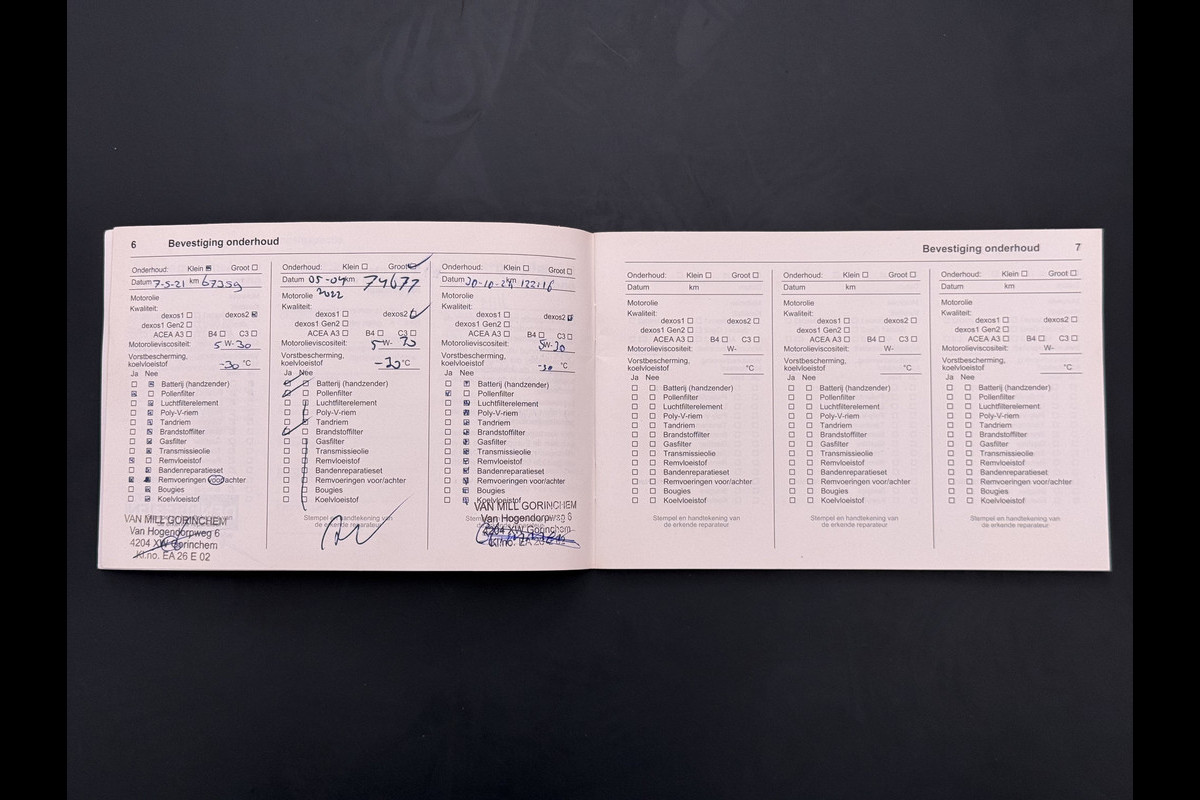 6 Bevestiging onderhoud
Onderhoud: Klein Groot
Datum 7-5-21 km 67359
Motorolie
Kwaliteit:
dexos1 dexos2
dexos1 Gen2
ACEA A3 B4 C3
Motorolieviscositeit: 5 W- 30
Vorstbescherming,
koelvloeistof -30 °C
Ja Nee
Batterij (handzender)
Pollenfilter
Luchtfilterelement
Poly-V-riem
Tandriem
Brandstoffilter
Gasfilter
Transmissieolie
Remvloeistof
Bandenreparatieset
Remvoeringen voor/achter
Bougies
Koelvloeistof
VAN MILL GORINCHEM
Van Hogendorpweg 6
4204 XW Gorinchem
Kl.no. EA 26 E 02
Onderhoud: Klein Groot
Datum 05-04 km 74677
2022
Motorolie
Kwaliteit:
dexos1 dexos2
dexos1 Gen2
ACEA A3 B4 C3
Motorolieviscositeit: 5 W- 30
Vorstbescherming,
koelvloeistof -30 °C
Ja Nee
Batterij (handzender)
Pollenfilter
Luchtfilterelement
Poly-V-riem
Tandriem
Brandstoffilter
Gasfilter
Transmissieolie
Remvloeistof
Bandenreparatieset
Remvoeringen voor/achter
Bougies
Koelvloeistof
Stempel en handtekening van
de erkende reparateur
Onderhoud: Klein Groot
Datum 122116
Motorolie
Kwaliteit:
dexos1 dexos2
dexos1 Gen2
ACEA A3 B4 C3
Motorolieviscositeit: 5W-30
Vorstbescherming,
koelvloeistof -30 °C
Ja Nee
Batterij (handzender)
Pollenfilter
Luchtfilterelement
Poly-V-riem
Tandriem
Brandstoffilter
Gasfilter
Transmissieolie
Remvloeistof
Bandenreparatieset
Remvoeringen voor/achter
Bougies
Koelvloeistof
VAN MILL GORINCHEM
Van Hogendorpweg 6
4204 XW Gorinchem
Kl.no. EA 26 E 02
Bevestiging onderhoud 7
Onderhoud: Klein Groot
Datum km
Motorolie
Kwaliteit:
dexos1 dexos2
dexos1 Gen2
ACEA A3 B4 C3
Motorolieviscositeit: W-
Vorstbescherming,
koelvloeistof °C
Ja Nee
Batterij (handzender)
Pollenfilter
Luchtfilterelement
Poly-V-riem
Tandriem
Brandstoffilter
Gasfilter
Transmissieolie
Remvloeistof
Bandenreparatieset
Remvoeringen voor/achter
Bougies
Koelvloeistof
Stempel en handtekening van
de erkende reparateur
Onderhoud: Klein Groot
Datum km
Motorolie
Kwaliteit:
dexos1 dexos2
dexos1 Gen2
ACEA A3 B4 C3
Motorolieviscositeit: W-
Vorstbescherming,
koelvloeistof °C
Ja Nee
Batterij (handzender)
Pollenfilter
Luchtfilterelement
Poly-V-riem
Tandriem
Brandstoffilter
Gasfilter
Transmissieolie
Remvloeistof
Bandenreparatieset
Remvoeringen voor/achter
Bougies
Koelvloeistof
Stempel en handtekening van
de erkende reparateur
Onderhoud: Klein Groot
Datum km
Motorolie
Kwaliteit:
dexos1 dexos2
dexos1 Gen2
ACEA A3 B4 C3
Motorolieviscositeit: W-
Vorstbescherming,
koelvloeistof °C
Ja Nee
Batterij (handzender)
Pollenfilter
Luchtfilterelement
Poly-V-riem
Tandriem
Brandstoffilter
Gasfilter
Transmissieolie
Remvloeistof
Bandenreparatieset
Remvoeringen voor/achter
Bougies
Koelvloeistof
Stempel en handtekening van
de erkende reparateur